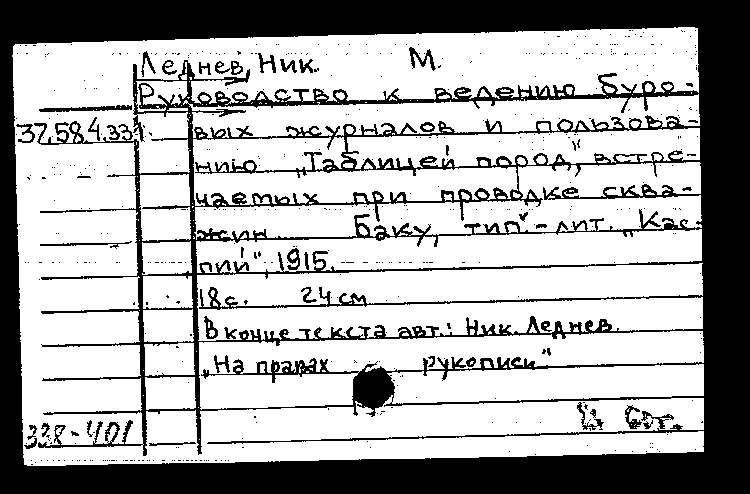 Леднев, Ник. М.
Руководство к ведению буро-
37.58.4.331 вых журналов и пользова-
нию „Таблицей пород", встре-
чаемых при проводке сква-
жин Баку, тип.-лит. „Кас-
пий", 1915.
18 с. 24 см
В конце текста авт.: Ник. Леднев.
„На правах рукописи"
338-401